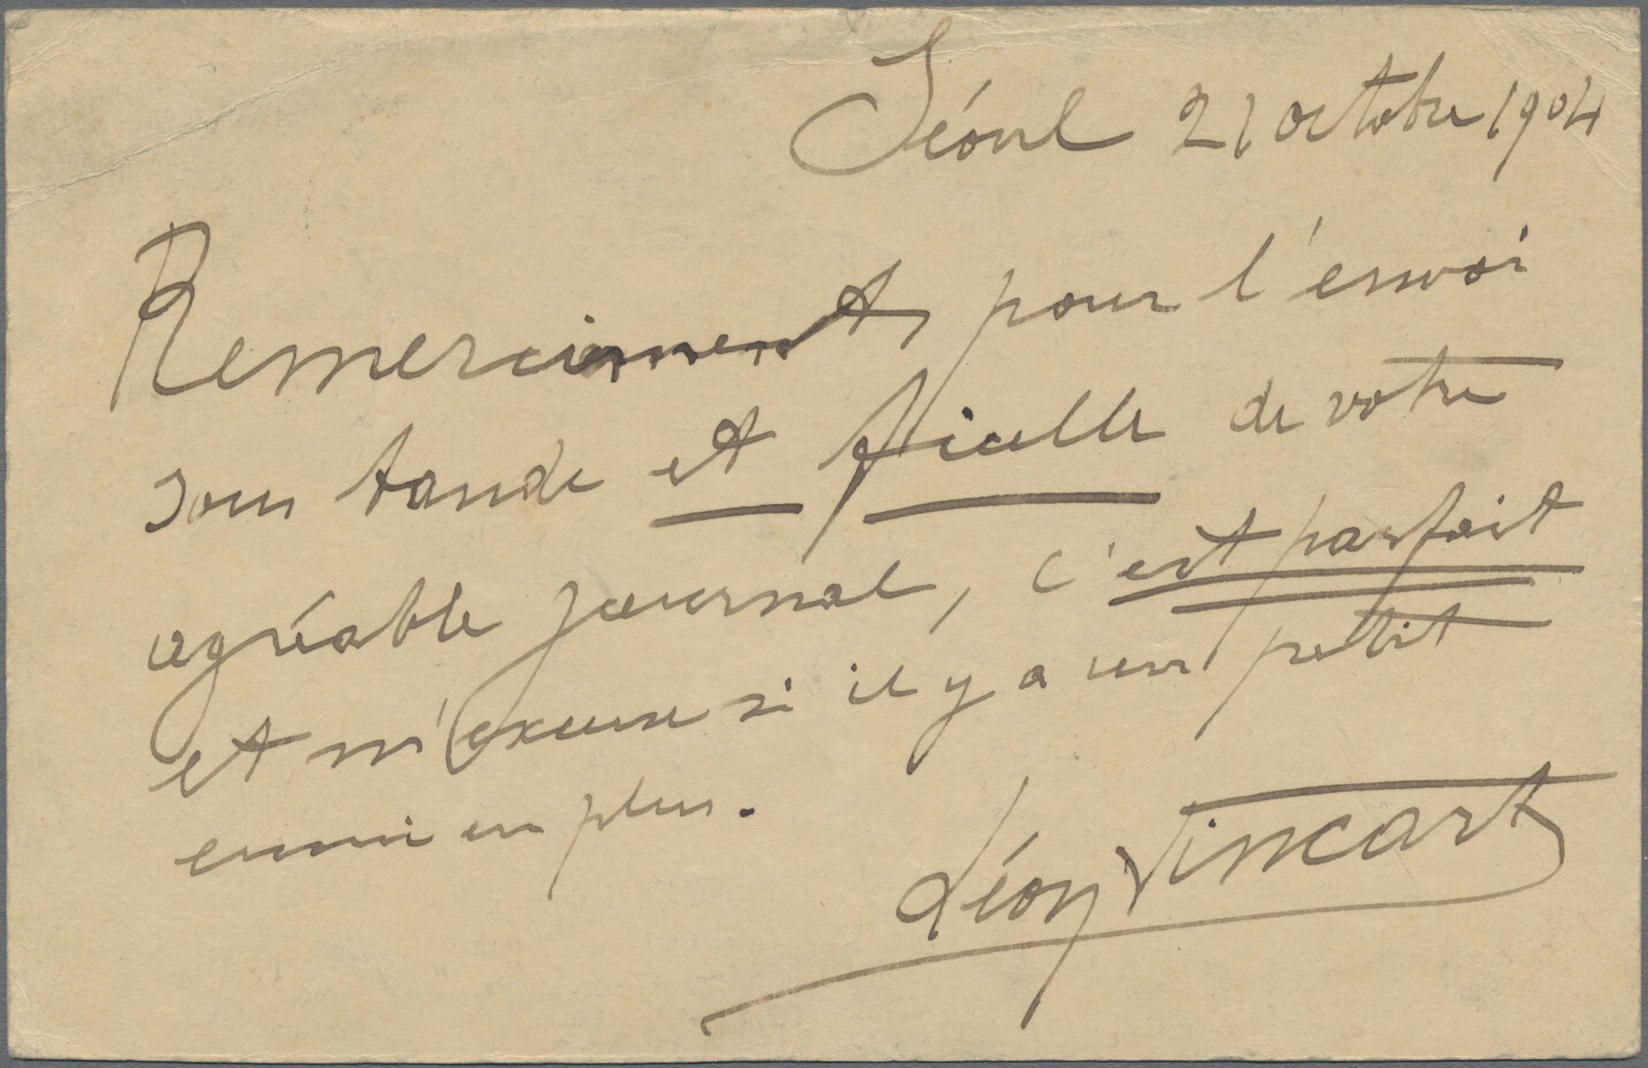 Séoul 21 octobre 1904
Remerciements pour l'envoi
sous bande et ficelle de votre
agréable journal, c'est parfait
et m'excuse si il y a un petit
ennui en plus.
Léon Vincart